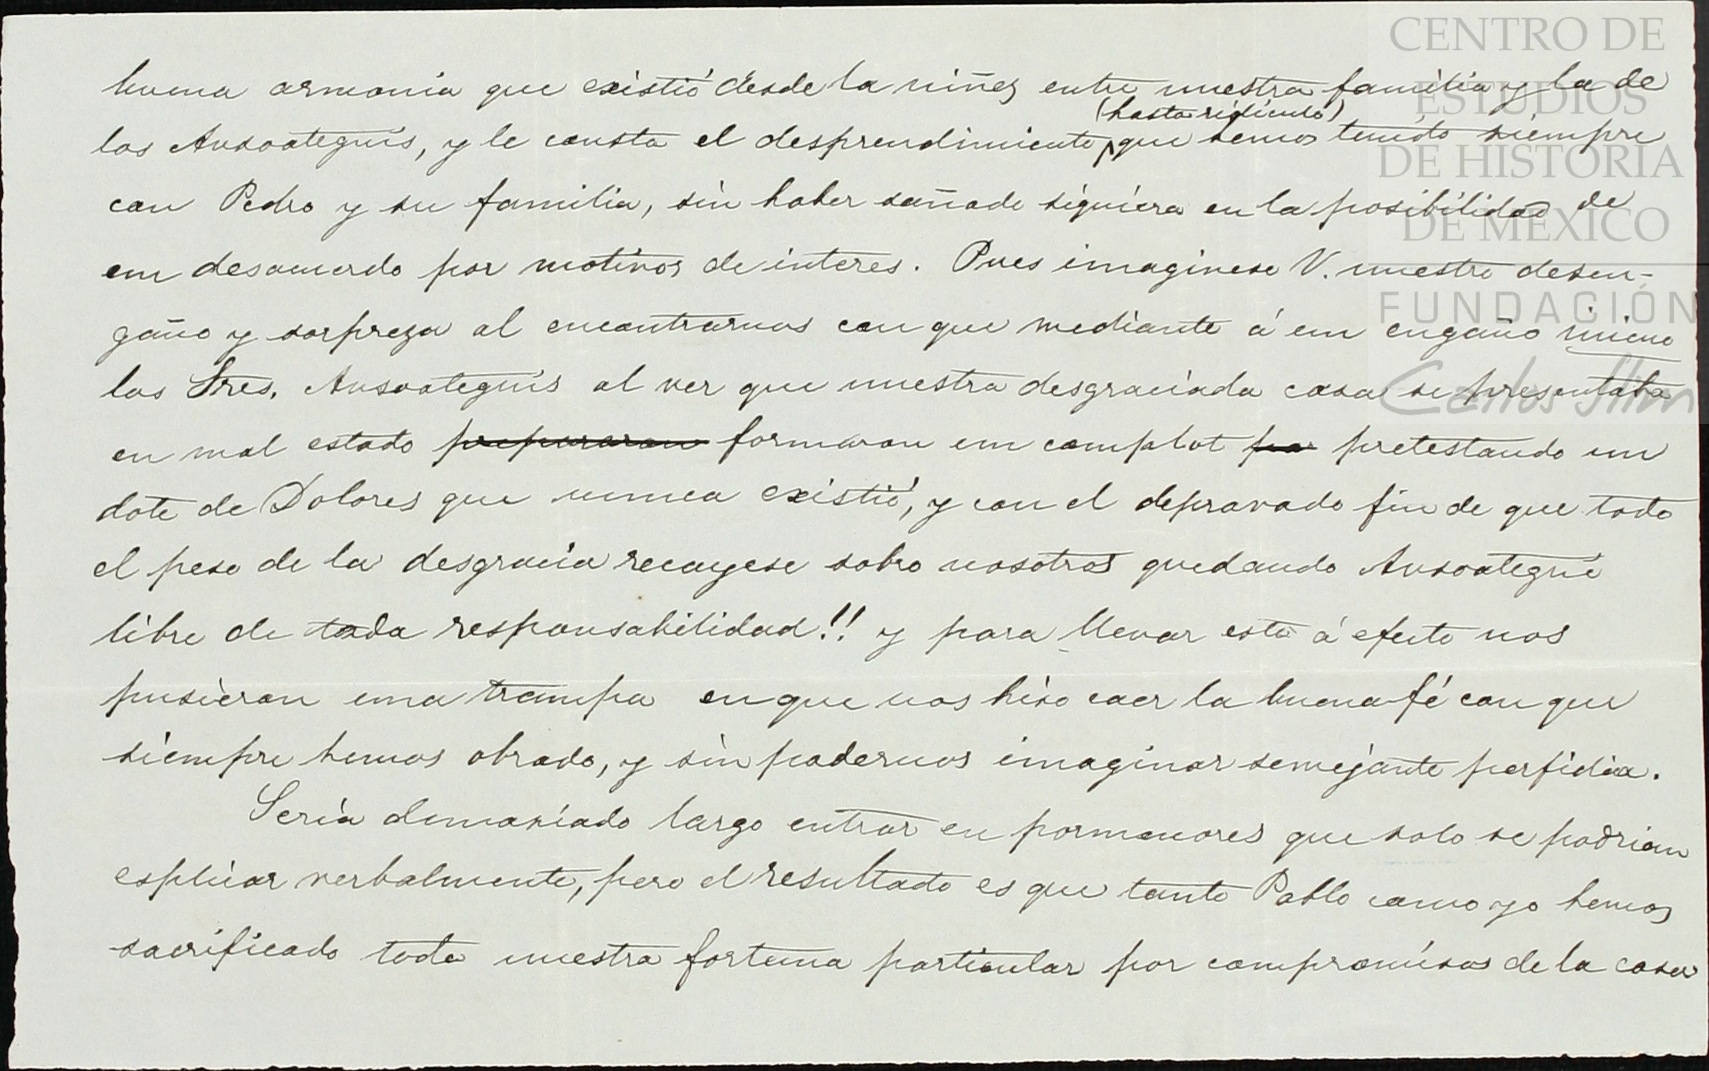 buena armonia que existió desde la niñez entre nuestra familia y la de
(hasta ridiculo)
los Ansoateguis, y le consta el desprendimiento, que hemos tenido siempre
con Pedro y su familia, sin haber soñado siquiera en la posibilidad de
un desacuerdo por motivos de interes. Pues imaginese V. nuestro desen-
gaño y sorpreza al encontrarnos con que mediante á un engaño inicuo
los Sres. Ansoateguis al ver que nuestra desgraciada casa se presentaba
en mal estado prepararon formaron un complot por pretestando un
dote de Dolores que nunca existió, y con el depravado fin de que todo
el peso de la desgracia recayese sobre nosotros quedando Ansoategui
libre de toda responsabilidad!! y para llevar esto á efecto nos
pusieron una trampa en que nos hiso caer la buena fé con que
siempre hemos obrado, y sin podernos imaginar semejante perfidia.
Seria demasiado largo entrar en pormenores que solo se podrian
esplicar verbalmente, pero el resultado es que tanto Pablo como yo hemos
sacrificado toda nuestra fortuna particular por compromisos de la casa
CENTRO DE
ESTUDIOS
DE HISTORIA
DE MÉXICO
FUNDACIÓN
Carlos Slim